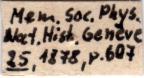 Mem. Soc. Phys.
Nat. Hist. Genève
25, 1878, p. 607